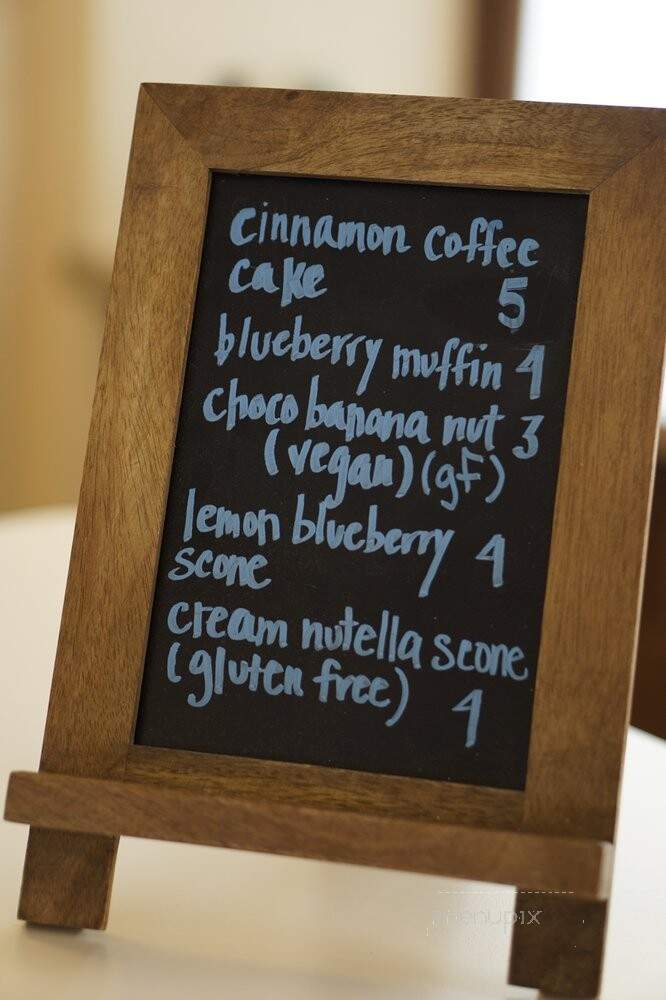 cinnamon coffee
cake 5
blueberry muffin 4
choco banana nut 3
(vegan) (gf)
lemon blueberry 4
scone
cream nutella scone
(gluten free) 4
menupix